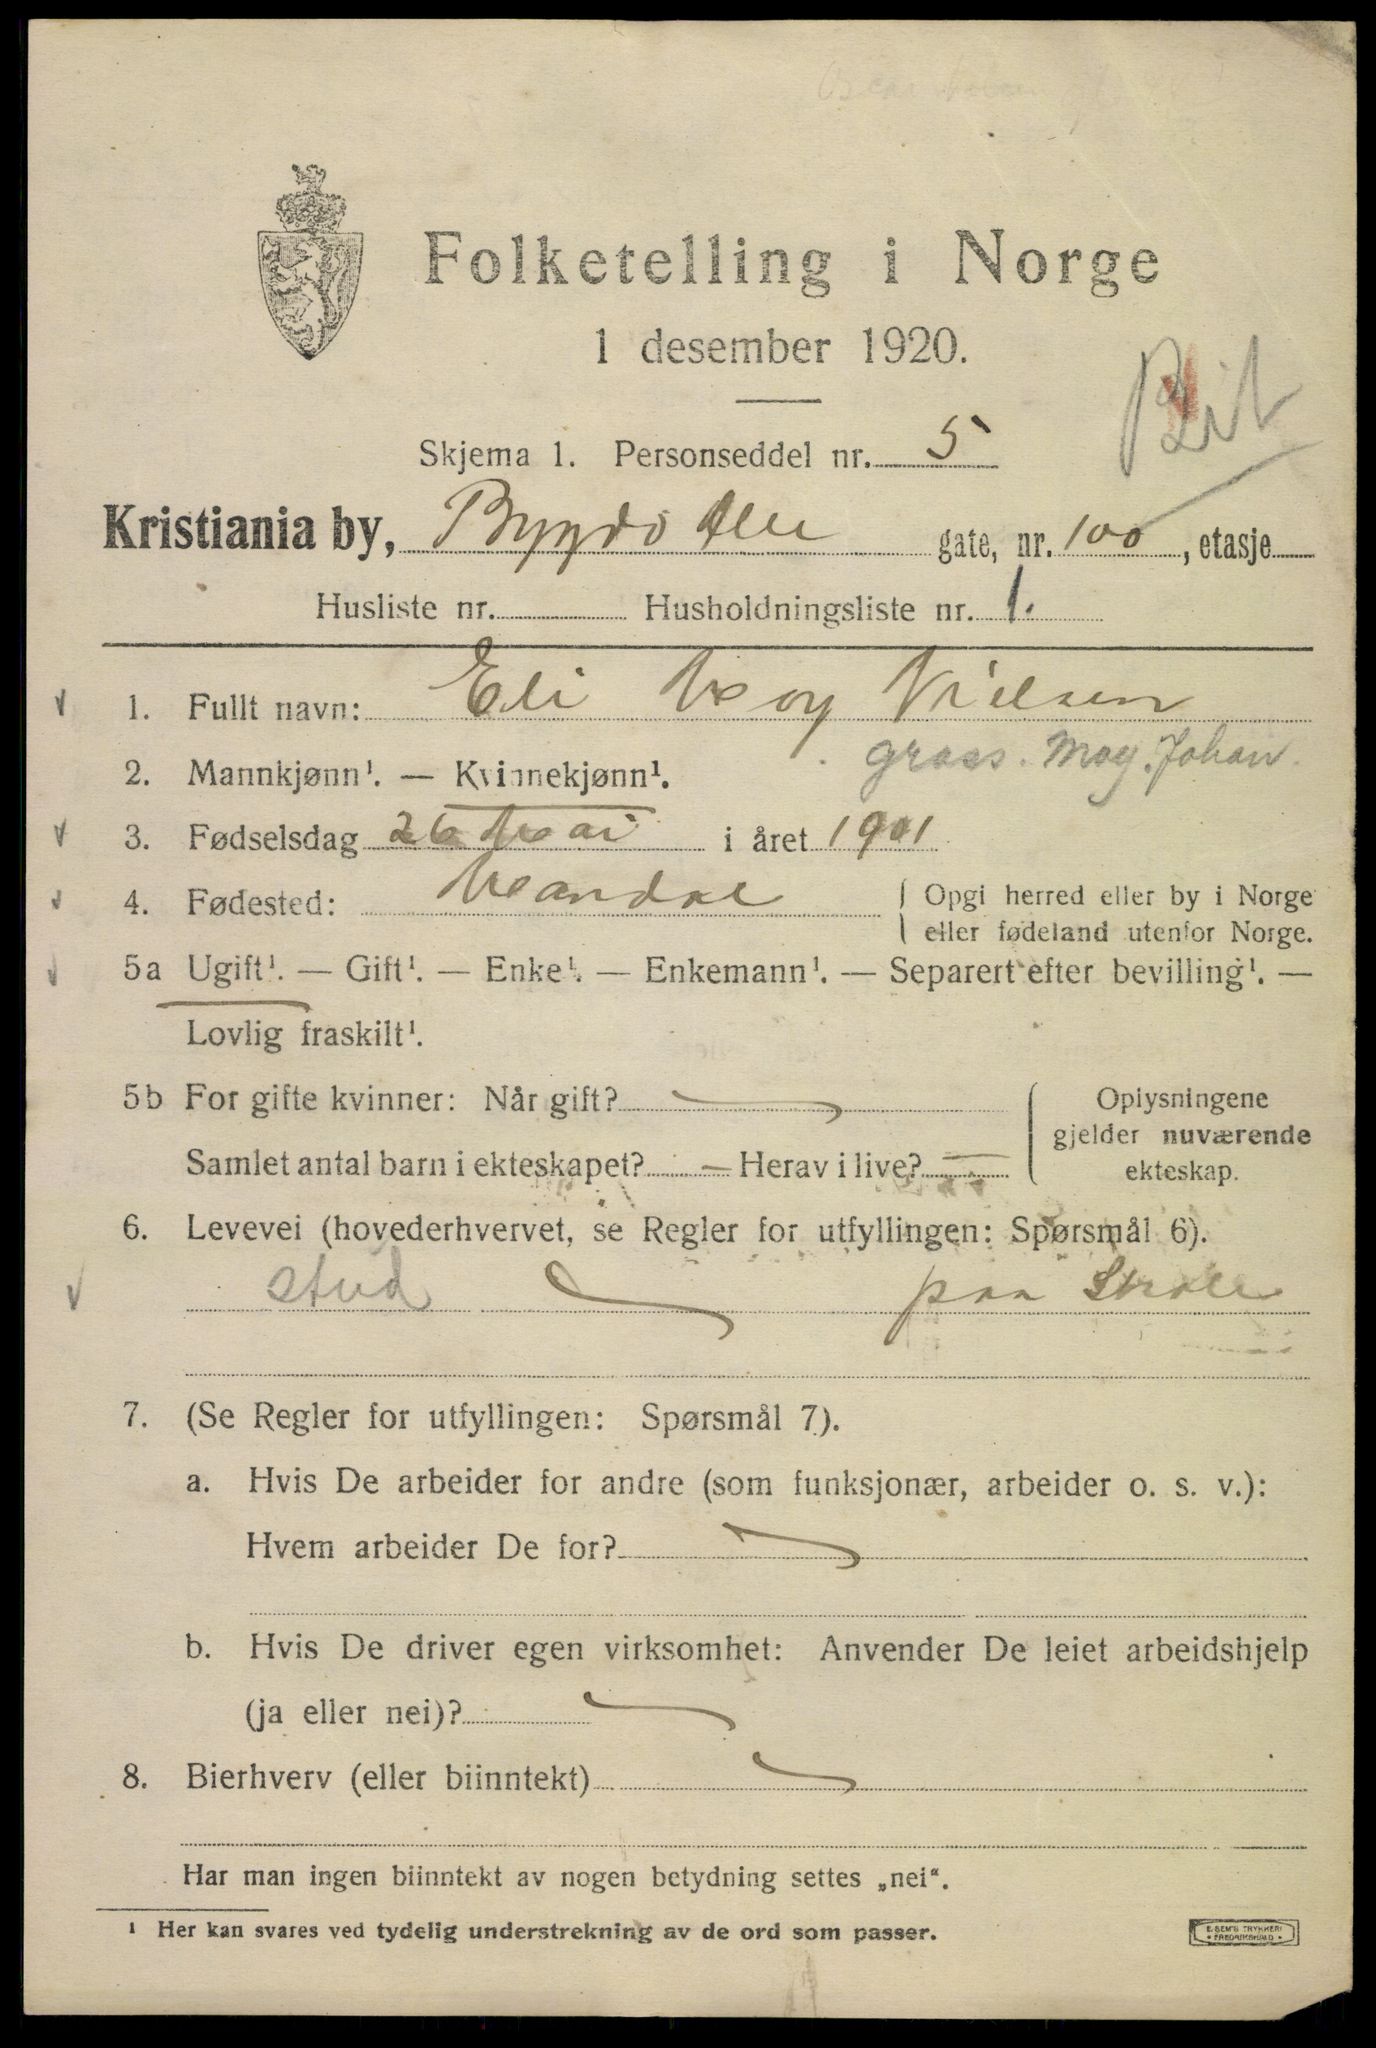 Folketelling i Norge
1 desember 1920.
Skjema 1. Personseddel nr. 5
Kristiania by, Bygdö Alle gate, nr. 100, etasje
Husliste nr. Husholdningsliste nr. 1.
1. Fullt navn: Eli Moy Nielsen
gross. Moy. Johan.
2. Mannkjønn¹. — Kvinnekjønn¹.
3. Fødselsdag 26 Mai i året 1901
4. Fødested: Mandal
Opgi herred eller by i Norge
eller fødeland utenfor Norge.
5a Ugift¹. — Gift¹. — Enke¹. — Enkemann¹. — Separert efter bevilling¹. —
Lovlig fraskilt¹.
5b For gifte kvinner: Når gift?
Samlet antal barn i ekteskapet? — Herav i live? —
Oplysningene
gjelder nuværende
ekteskap.
6. Levevei (hovederhvervet, se Regler for utfyllingen: Spørsmål 6).
stud paa Skole
7. (Se Regler for utfyllingen: Spørsmål 7).
a. Hvis De arbeider for andre (som funksjonær, arbeider o. s. v.):
Hvem arbeider De for?
b. Hvis De driver egen virksomhet: Anvender De leiet arbeidshjelp
(ja eller nei)?
8. Bierhverv (eller biinntekt)
Har man ingen biinntekt av nogen betydning settes „nei“.
¹ Her kan svares ved tydelig understrekning av de ord som passer.
E. SEM'S TRYKKERI
• FREDRIKSHALD •